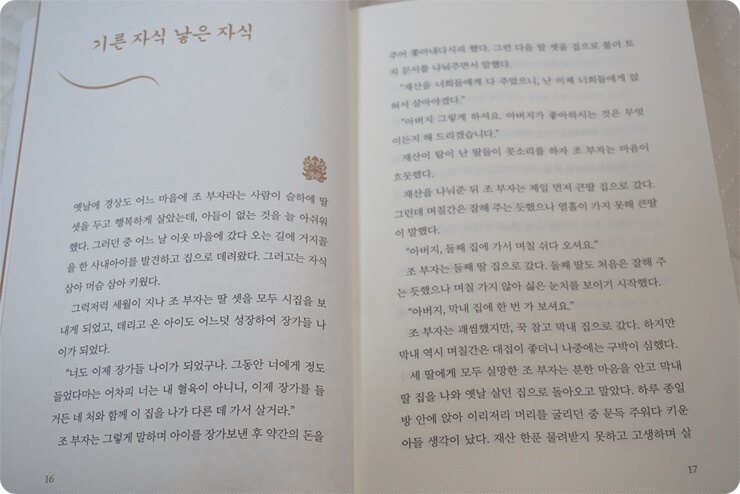 기른 자식 낳은 자식
옛날에 경상도 어느 마을에 조 부자라는 사람이 슬하에 딸
셋을 두고 행복하게 살았는데, 아들이 없는 것을 늘 아쉬워
했다. 그러던 중 어느 날 이웃 마을에 갔다 오는 길에 거지꼴
을 한 사내아이를 발견하고 집으로 데려왔다. 그러고는 자식
삼아 머슴 삼아 키웠다.
그럭저럭 세월이 지나 조 부자는 딸 셋을 모두 시집을 보
내게 되었고, 데리고 온 아이도 어느덧 성장하여 장가들 나
이가 되었다.
“너도 이제 장가들 나이가 되었구나. 그동안 너에게 정도
들었다마는 어차피 너는 내 혈육이 아니니, 이제 장가를 들
거든 네 처와 함께 이 집을 나가 다른 데 가서 살거라.”
조 부자는 그렇게 말하며 아이를 장가보낸 후 약간의 돈을
16
주어 쫓아내다시피 했다. 그런 다음 딸 셋을 집으로 불러 토
지 문서를 나눠주면서 말했다.
“재산을 너희들에게 다 주었으니, 난 이제 너희들에게 얹
혀서 살아야겠다.”
“아버지 그렇게 하셔요. 아버지가 좋아하시는 것은 무엇
이든지 해 드리겠습니다.”
재산이 탐이 난 딸들이 꼿소리를 하자 조 부자는 마음이
흐뭇했다.
재산을 나눠준 뒤 조 부자는 제일 먼저 큰딸 집으로 갔다.
그런데 며칠간은 잘해 주는 듯했으나 열흘이 가지 못해 큰딸
이 말했다.
“아버지, 둘째 집에 가서 며칠 쉬다 오셔요.”
조 부자는 둘째 딸 집으로 갔다. 둘째 딸도 처음은 잘해 주
는 듯했으나 며칠 가지 않아 싫은 눈치를 보이기 시작했다.
“아버지, 막내 집에 한 번 가 보셔요.”
조 부자는 괘씸했지만, 꾹 참고 막내 집으로 갔다. 하지만
막내 역시 며칠간은 대접이 좋더니 나중에는 구박이 심했다.
세 딸에게 모두 실망한 조 부자는 분한 마음을 안고 막내
딸 집을 나와 옛날 살던 집으로 돌아오고 말았다. 하루 종일
방 안에 앉아 이리저리 머리를 굴리던 중 문득 주워다 키운
아들 생각이 났다. 재산 한푼 물려받지 못하고 고생하며 살
17